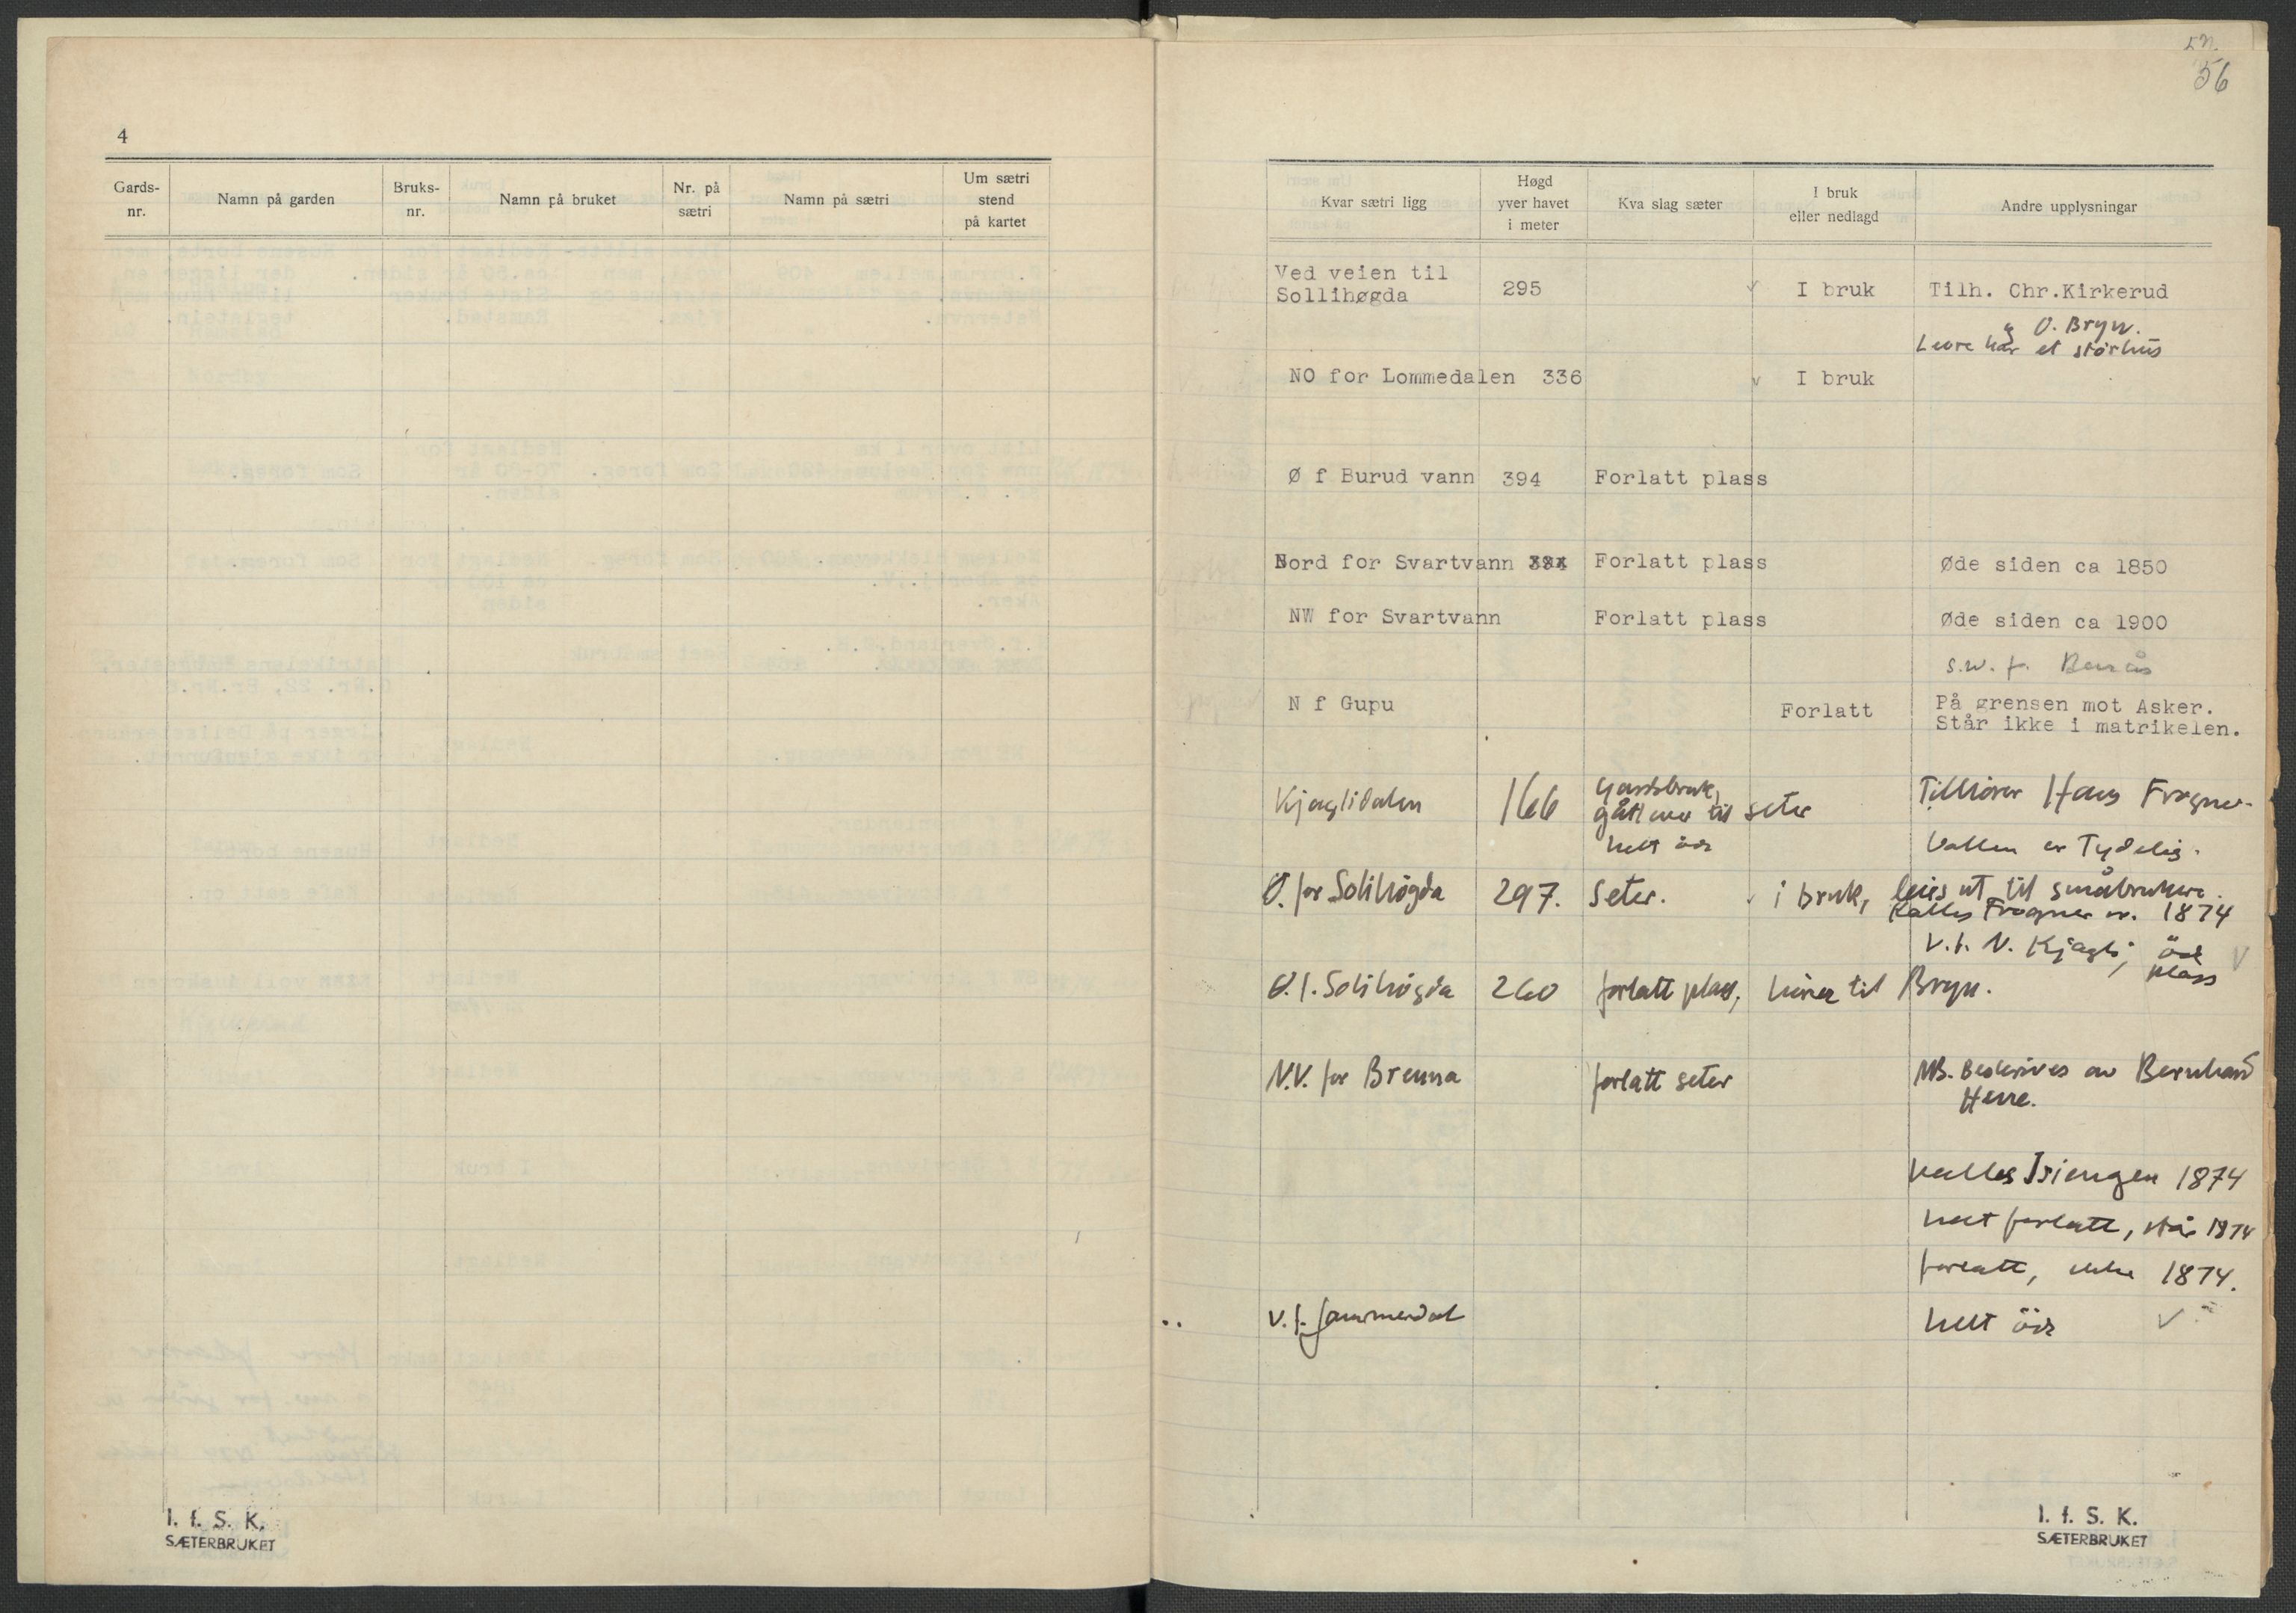 4
Gards-
nr.
Namn på garden
Bruks-
nr.
Namn på bruket
Nr. på
sætri
Namn på sætri
Um sætri
stend
på kartet
I. f. S. K.
SÆTERBRUKET
56
Kvar sætri ligg
Høgd
yver havet
i meter
Kva slag sæter
I bruk
eller nedlagd
Andre upplysningar
Ved veien til
Sollihøgda 295 I bruk Tilh. Chr.Kirkerud
O. Bryn.
har et størhus
NO for Lommedalen 336 v I bruk
Ø f Burud vann 394 Forlatt plass
Nord for Svartvann Forlatt plass Øde siden ca 1850
NW for Svartvann Forlatt plass Øde siden ca 1900
s.w. f.
N f Gupu Forlatt På grensen mot Asker.
Står ikke i matrikelen.
Kjaglidalen 166 Gardsbruk, Tilhører Hans Frogner.
gått over til seter
helt öde Vallen er Tydelig.
Ö. for Solihögda 297. Seter. i bruk, leies ut til småbrukere.
Kalles Frogner 1874
V. f. N. Kjagli, öde
plass
Ö. f. Solihögda 260 forlatt plass, hörer til Bryn.
N.V. for Brenna forlatt seter NB. Beskrives av Bernhard
Herre.
kalles 1874
helt forlatt, står 1874
forlatt, ikke 1874.
V. f. helt öde v
I. f. S. K.
SÆTERBRUKET